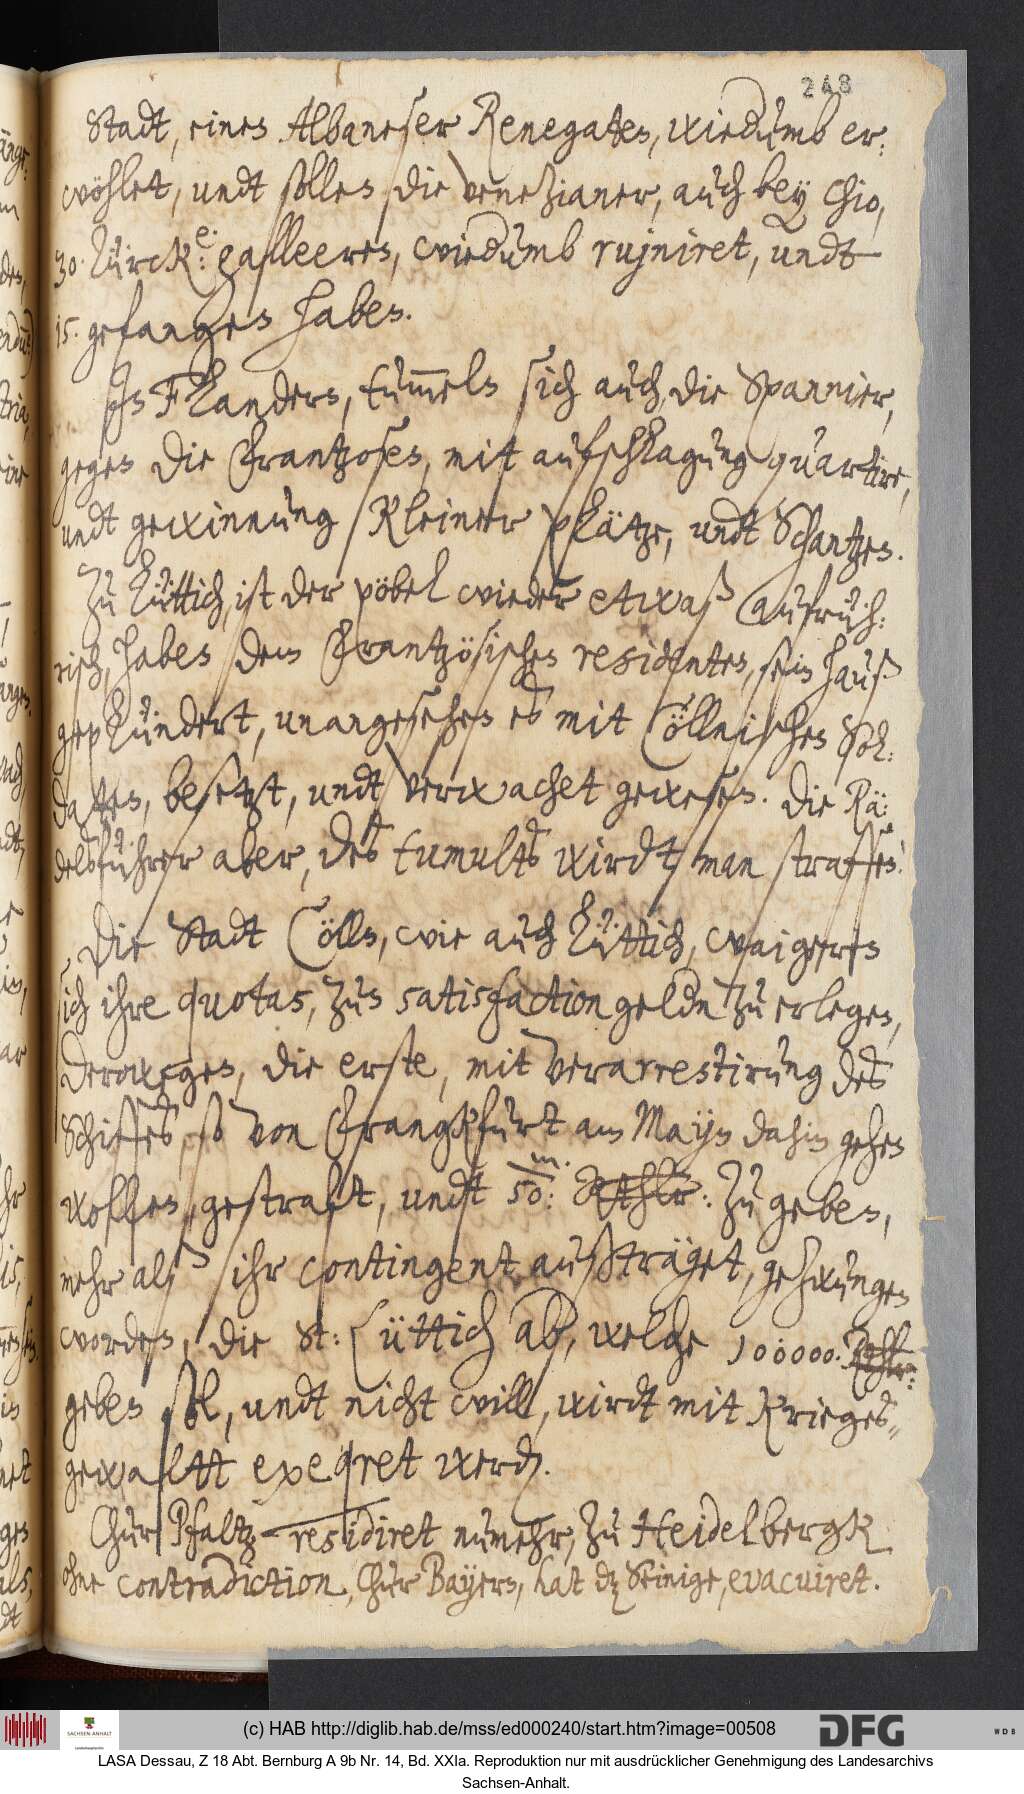 248
Stadt, eines Albaneser Renegaten, wiedumb er:
wöhlet, undt sollen die Venezianer, auch bey Chio,
30. Türck.e: galleeren, wiedumb rujniret, undt
15. gefangen haben.
In Flandern, tum̅eln sich auch die Spannier,
gegen die Frantzosen, mit aufschlagung quartire,
undt gewinnung kleiner plätze, undt Schantzen.
Zu Lüttich, ist der pöbel wieder etwaß aufrüh:
risch, haben dem Frantzösischen residenten, sein hauß
geplündert, unangesehen es mit Cöllnischen Sol:
daten, besetzt, undt verwachet gewesen. Die Rä:
delsführer aber, des tumults wirdt man straffen.
Die Stadt Cölln, wie auch Lüttich, waigern
sich ihre quotas, zun satisfaction geldn zu erlegen,
derowegen, die erste, mit verarrestirung des
Schiffes so von Franckfurt am Mayn dahin gehen
wollen, gestraft, undt 50:m. Rthlr: zu geben,
mehr alß ihr contingent außträget, gezwungen
worden, die St: Lüttich ab, welche 100000. Rthlr:
geben soll, undt nicht will, wirdt mit Krieges„
gewaltt exeqret werdn.
Chur Pfaltz residiret numehr, zu Heidelbergk
ohne contradiction, Chur Bayern, hat dz Seinige, evacuiret.
(c) HAB http://diglib.hab.de/mss/ed000240/start.htm?image=00508
DFG
WDB
SACHSEN-ANHALT
LASA Dessau, Z 18 Abt. Bernburg A 9b Nr. 14, Bd. XXIa. Reproduktion nur mit ausdrücklicher Genehmigung des Landesarchivs
Sachsen-Anhalt.